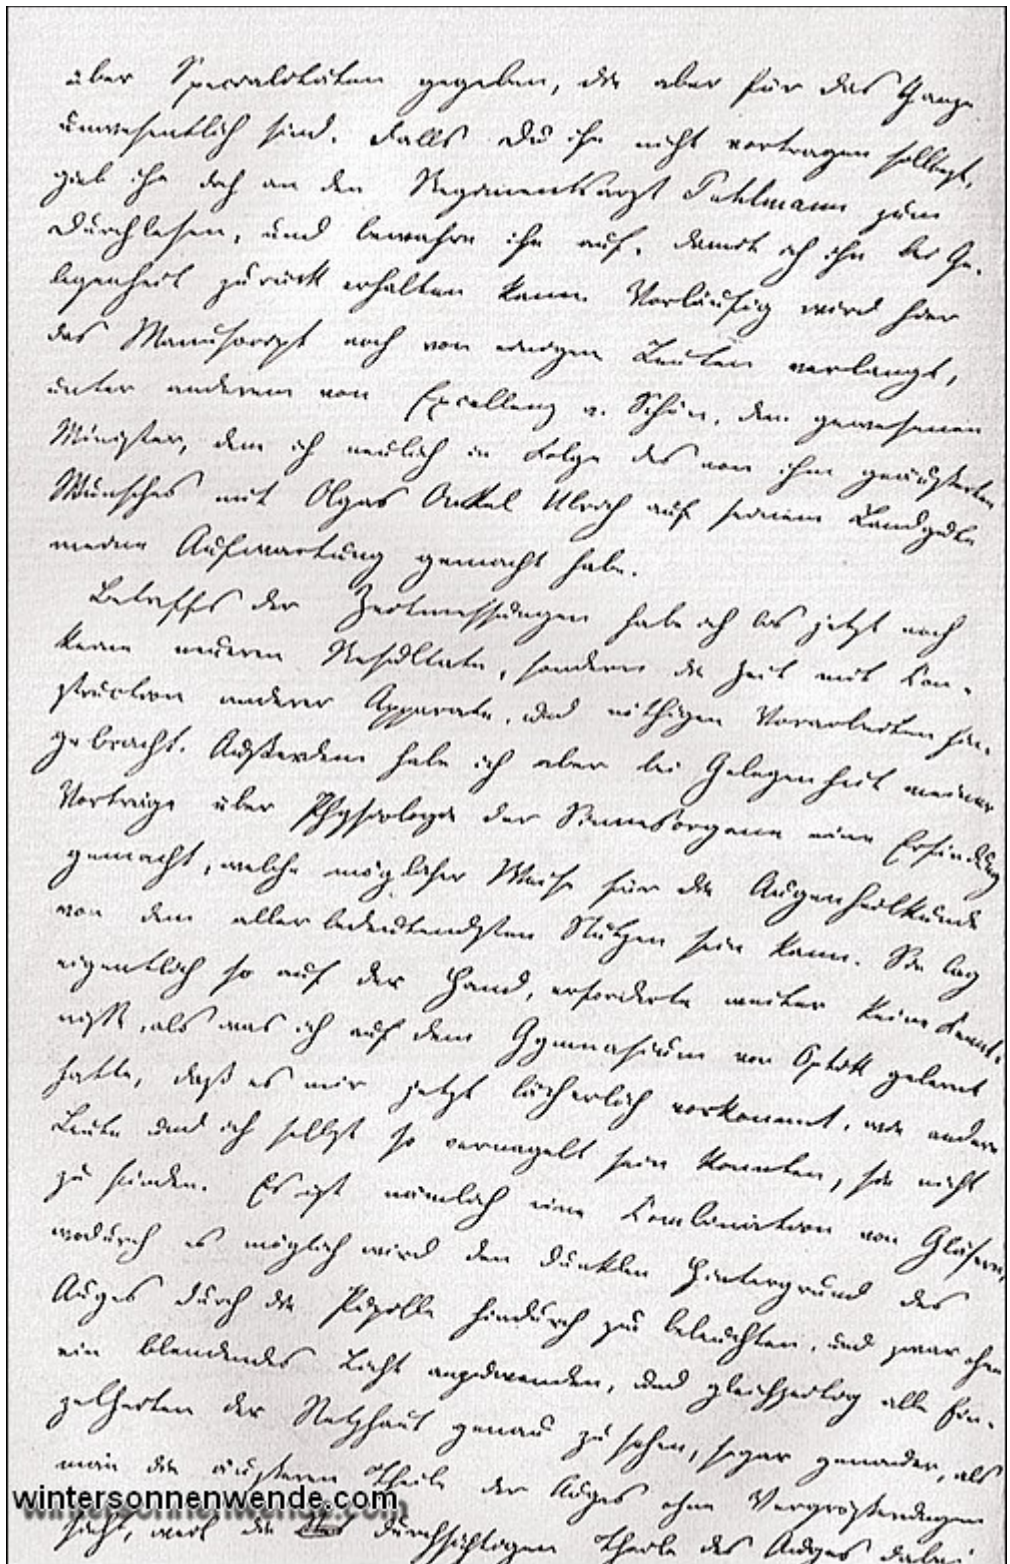 über Specialitäten gegeben, die aber für das Ganze
unwesentlich sind. Falls Du ihn nicht vortragen solltest,
gieb ihn doch an den Regimentsarzt Puhlmann zum
Durchlesen, und bewahre ihn auf, damit ich ihn bei Ge-
legenheit zurück erhalten kann. Vorläufig wird hier
das Manuscript noch von einigen Leuten verlangt,
unter anderem von Excellenz v. Schön, dem gewesenen
Minister, dem ich neulich in Folge des von ihm geäußerten
Wunsches mit Olgas Onkel Ulrich auf seinem Landgute
meine Aufwartung gemacht habe.
Betreffs der Zeitmessungen habe ich bis jetzt noch
keine neueren Resultate, sondern die Zeit mit Con-
struction anderer Apparate, und nöthigen Vorarbeiten hin-
gebracht. Außerdem habe ich aber bei Gelegenheit meiner
Vorträge über Physiologie der Sinnesorgane eine Erfindung
gemacht, welche möglicher Weise für die Augenheilkunde
von dem aller bedeutendsten Nutzen sein kann. Sie lag
eigentlich so auf der Hand, erforderte weiter keine Kennt-
nisse, als was ich auf dem Gymnasium von Optik gelernt
hatte, daß es mir jetzt lächerlich vorkommt, wie andere
Leute und ich selbst so vernagelt sein konnten, sie nicht
zu finden. Es ist nämlich eine Combination von Gläsern,
wodurch es möglich wird den dunklen Hintergrund des
Auges durch die Pupille hindurch zu beleuchten, und zwar ohne
ein blendendes Licht anzuwenden, und gleichzeitig alle Ein-
zelheiten der Netzhaut genau zu sehen, sogar genauer, als
man die äußeren Theile des Auges ohne Vergrößerungen
sieht, weil die durchsichtigen Theile des Auges dabei
wintersonnenwende.com